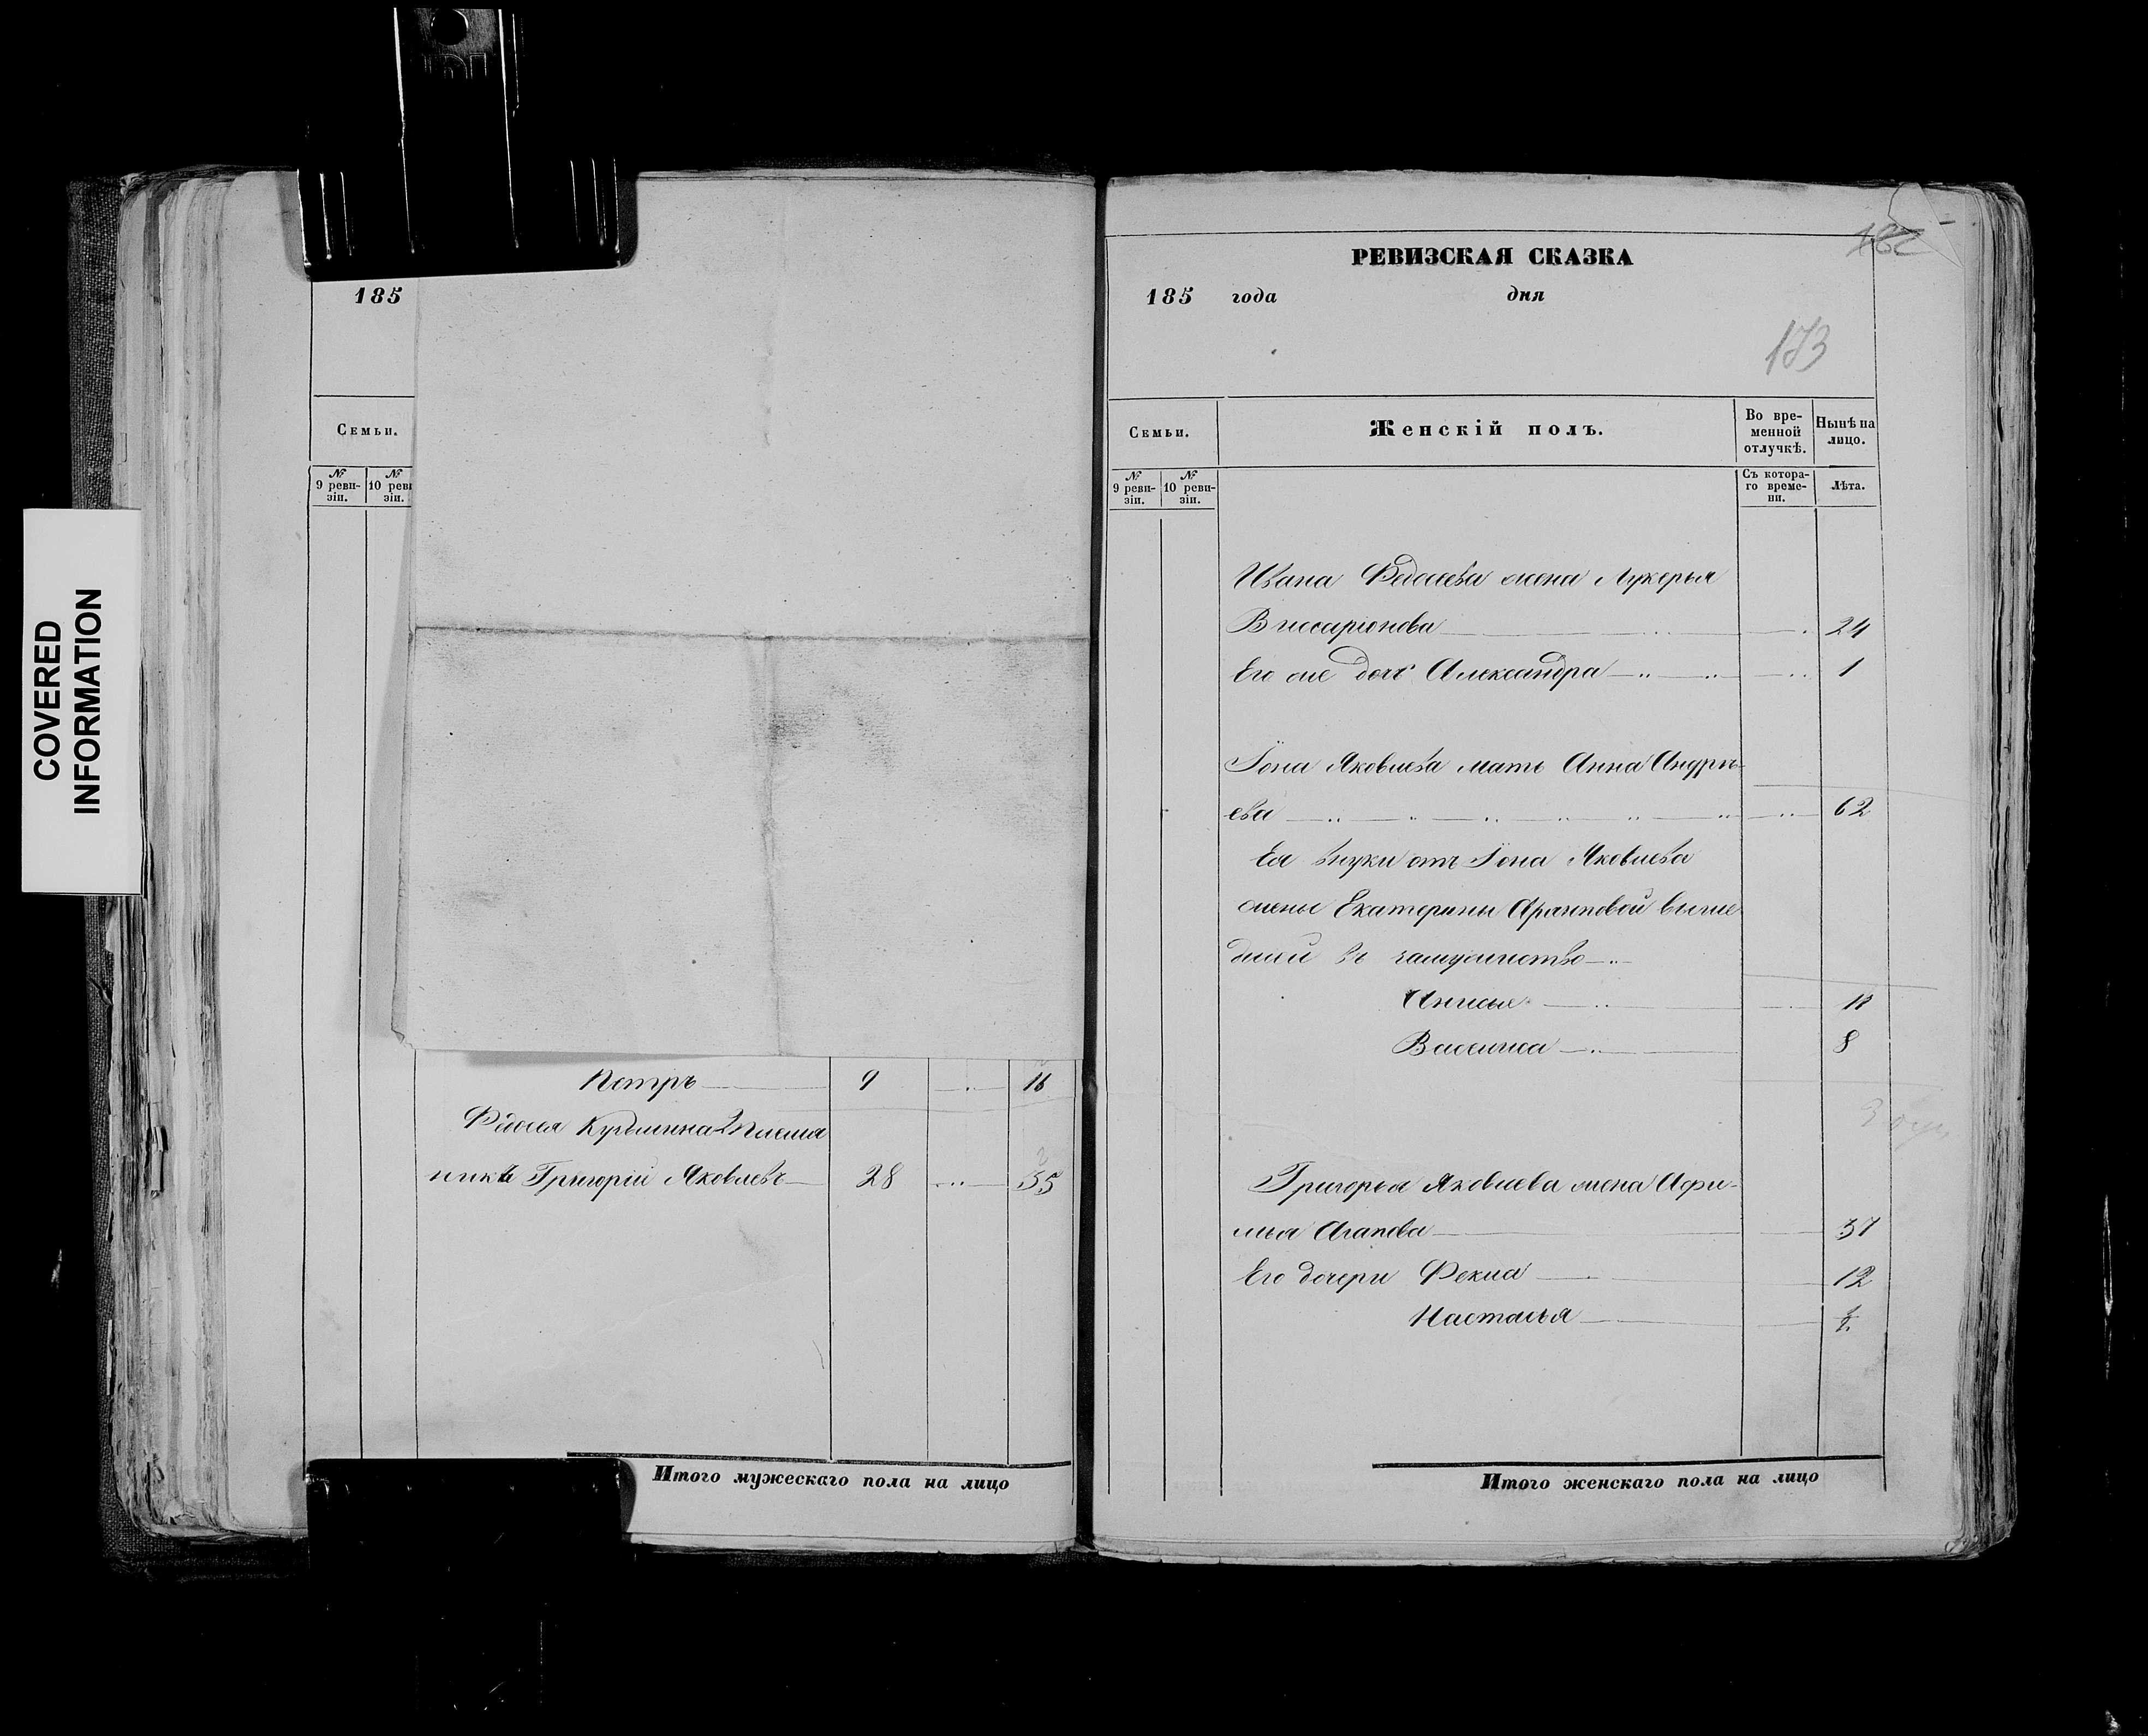 COVERED
INFORMATION
185
Семьи.
№
9 реви-
зіи.
№
10 реви
зіи.
Петръ 9 16
Федосея Кузьмина 2 племя
никъ Григорій Яковлевъ 28 35
Итого мужескаго пола на лицо
РЕВИЗСКАЯ СКАЗКА
185 года дня
173
Семьи.
Женскій полъ.
Во вре-
менной
отлучкѣ.
Нынѣ на
лицо.
№
9 реви-
зіи.
№
10 реви-
зіи.
Съ котора-
го време-
ни.
Лѣта.
Ивана Федосеева жена Лукерья
Висаріонова 24
Его же дочь Александра 1
Іона Яковлева мать Анна Андре-
ева 62
Ея внуки отъ Іона Яковлева
жены Екатерины вышe
дшей въ замужиство
Анисья 11
Василиса 8
Григорья Яковлева жена Афи-
мья Агапова 37
Его дочери Фекла 12
Настасья
Итого женскаго пола на лицо